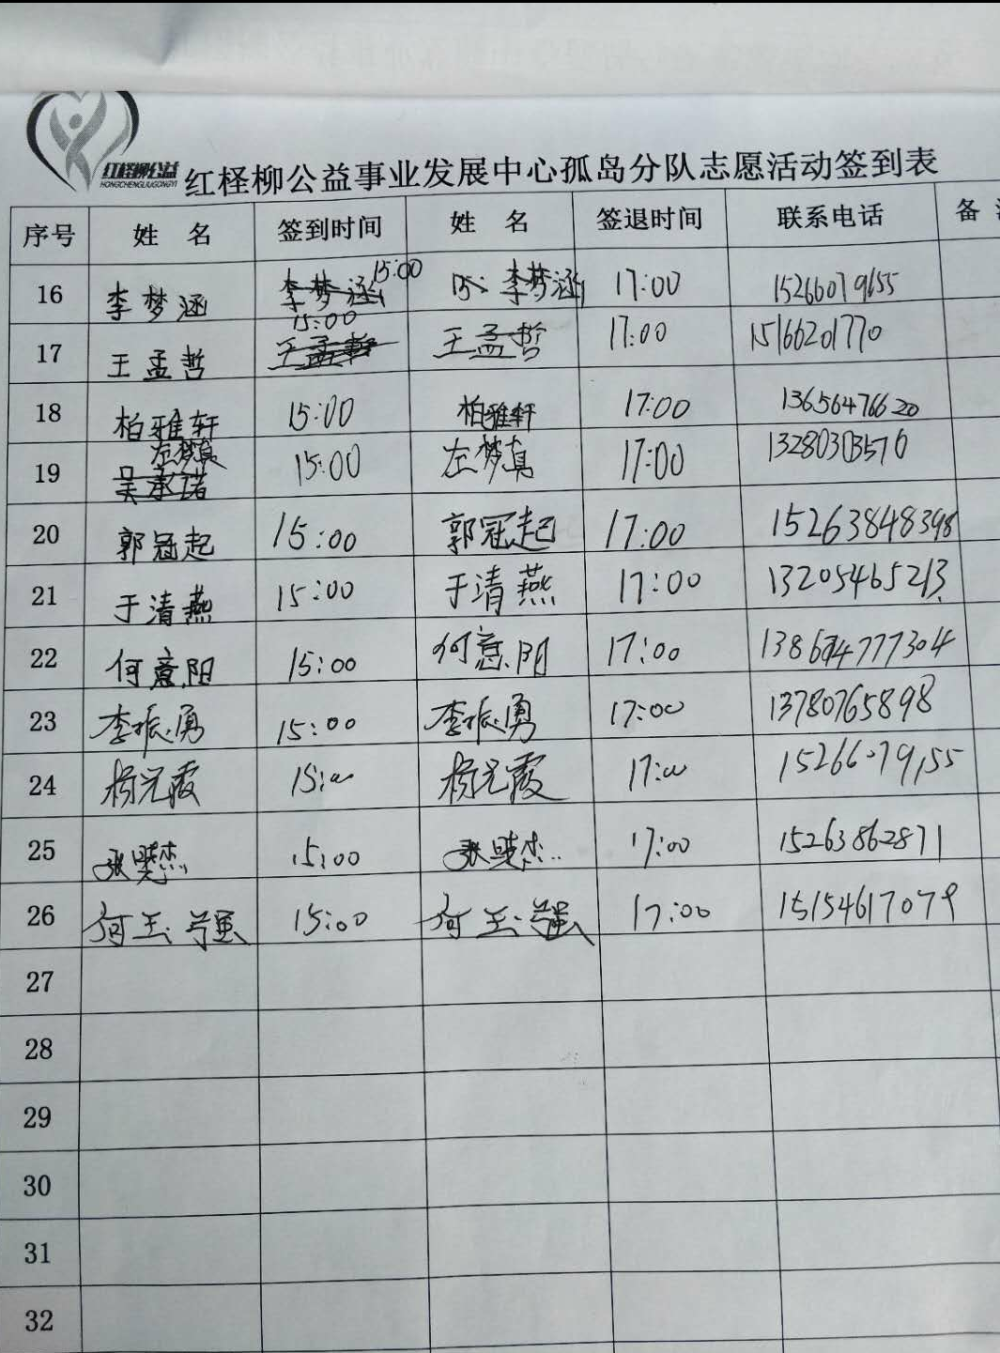 红柽柳公益
HONGCHENGLIUGONGYI
红柽柳公益事业发展中心孤岛分队志愿活动签到表
序号 姓名 签到时间 姓名 签退时间 联系电话 备
16 李梦涵 李梦涵 15:00 15: 李梦涵 17:00 15266079655
17 王孟哲 15:00 王孟哲 王孟哲 17:00 15166201770
18 柏雅轩 15:00 柏雅轩 17:00 13656476620
19 吴承诺 左梦真 15:00 左梦真 17:00 13280303570
20 郭冠起 15:00 郭冠起 17:00 15263848398
21 于清燕 15:00 于清燕 17:00 13205465213
22 何意阳 15:00 何意阳 17:00
23 李振勇 15:00 李振勇 17:00 13780765898
24 杨元霞 15:00 杨元霞 17:00 15266079155
25 15:00 17:00 15263862871
26 何玉强 15:00 何玉强 17:00 15154617079
27
28
29
30
31
32